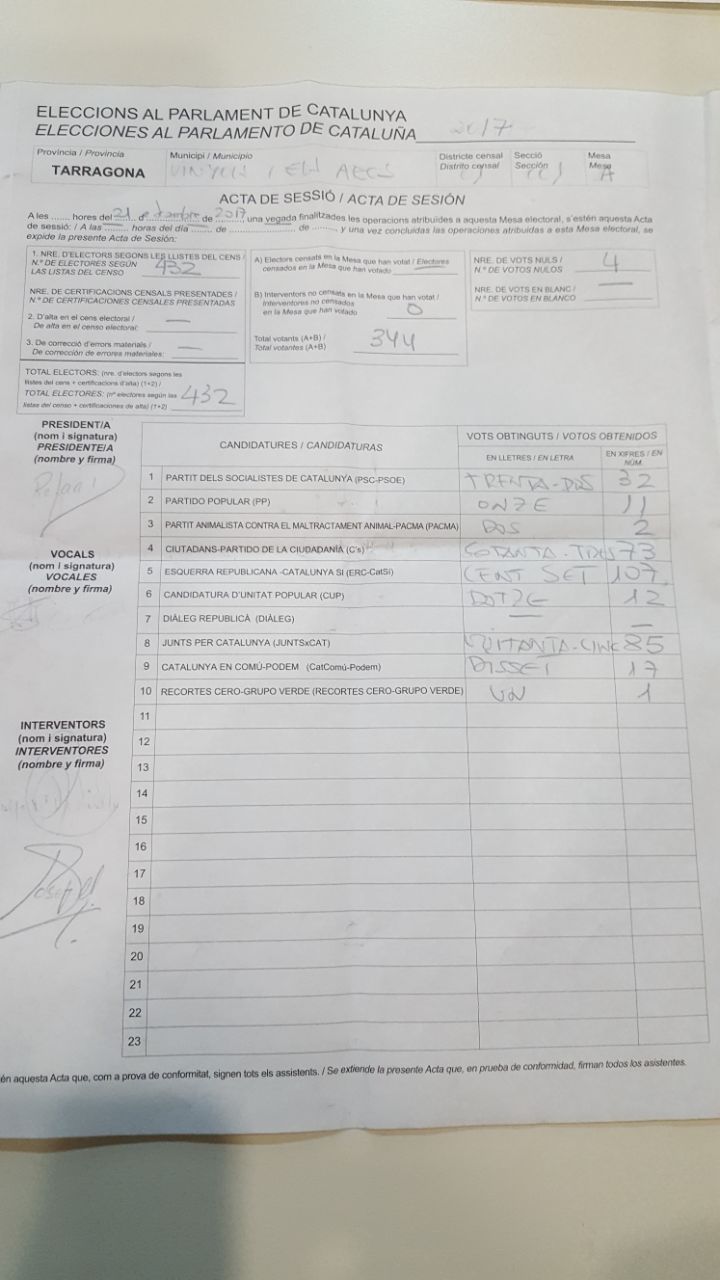 ELECCIONS AL PARLAMENT DE CATALUNYA
ELECCIONES AL PARLAMENTO DE CATALUÑA 2017
Província / Provincia
TARRAGONA
Municipi / Municipio
VINYOLS I ELS ARCS
Districte censal
Distrito censal
Secció
Sección
Mesa
Mesa
A
ACTA DE SESSIÓ / ACTA DE SESIÓN
A les ....... hores del 21 d desembre de 2017 una vegada finalitzades les operacions atribuïdes a aquesta Mesa electoral, s'estén aquesta Acta
de sessió: / A las ....... horas del día ....... de ....................... de ........ y una vez concluidas las operaciones atribuidas a esta Mesa electoral, se
expide la presente Acta de Sesión:
1. NRE. D'ELECTORS SEGONS LES LLISTES DEL CENS /
N.º DE ELECTORES SEGÚN
LAS LISTAS DEL CENSO
432
NRE. DE CERTIFICACIONS CENSALS PRESENTADES /
N.º DE CERTIFICACIONES CENSALES PRESENTADAS
2. D'alta en el cens electoral /
De alta en el censo electoral: —
3. De correcció d'errors materials /
De corrección de errores materiales: —
TOTAL ELECTORS: (nre. d'electors segons les
llistes del cens + certificacions d'alta) (1+2) /
TOTAL ELECTORES: (nº electores según las
listas del censo + certificaciones de alta) (1+2)
432
A) Electors censats en la Mesa que han votat / Electores
censados en la Mesa que han votado —
B) Interventors no censats en la Mesa que han votat /
Interventores no censados
en la Mesa que han votado 0
Total votants (A+B) /
Total votantes (A+B) 344
NRE. DE VOTS NULS /
N.º DE VOTOS NULOS 4
NRE. DE VOTS EN BLANC /
N.º DE VOTOS EN BLANCO —
PRESIDENT/A
(nom i signatura)
PRESIDENTE/A
(nombre y firma)
VOCALS
(nom i signatura)
VOCALES
(nombre y firma)
INTERVENTORS
(nom i signatura)
INTERVENTORES
(nombre y firma)
CANDIDATURES / CANDIDATURAS
VOTS OBTINGUTS / VOTOS OBTENIDOS
EN LLETRES / EN LETRA
EN XIFRES / EN
NÚM.
1 PARTIT DELS SOCIALISTES DE CATALUNYA (PSC-PSOE) TRENTA-DOS 32
2 PARTIDO POPULAR (PP) ONZE 11
3 PARTIT ANIMALISTA CONTRA EL MALTRACTAMENT ANIMAL-PACMA (PACMA) DOS 2
4 CIUTADANS-PARTIDO DE LA CIUDADANÍA (C's) SETANTA-TRES 73
5 ESQUERRA REPUBLICANA -CATALUNYA SI (ERC-CatSí) CENT SET 107
6 CANDIDATURA D'UNITAT POPULAR (CUP) DOTZE 12
7 DIÀLEG REPUBLICÀ (DIÀLEG) — —
8 JUNTS PER CATALUNYA (JUNTSxCAT) VUITANTA-CINC 85
9 CATALUNYA EN COMÚ-PODEM (CatComú-Podem) DISSET 17
10 RECORTES CERO-GRUPO VERDE (RECORTES CERO-GRUPO VERDE) UN 1
11
12
13
14
15
16
17
18
19
20
21
22
23
én aquesta Acta que, com a prova de conformitat, signen tots els assistents. / Se extiende la presente Acta que, en prueba de conformidad, firman todos los asistentes.